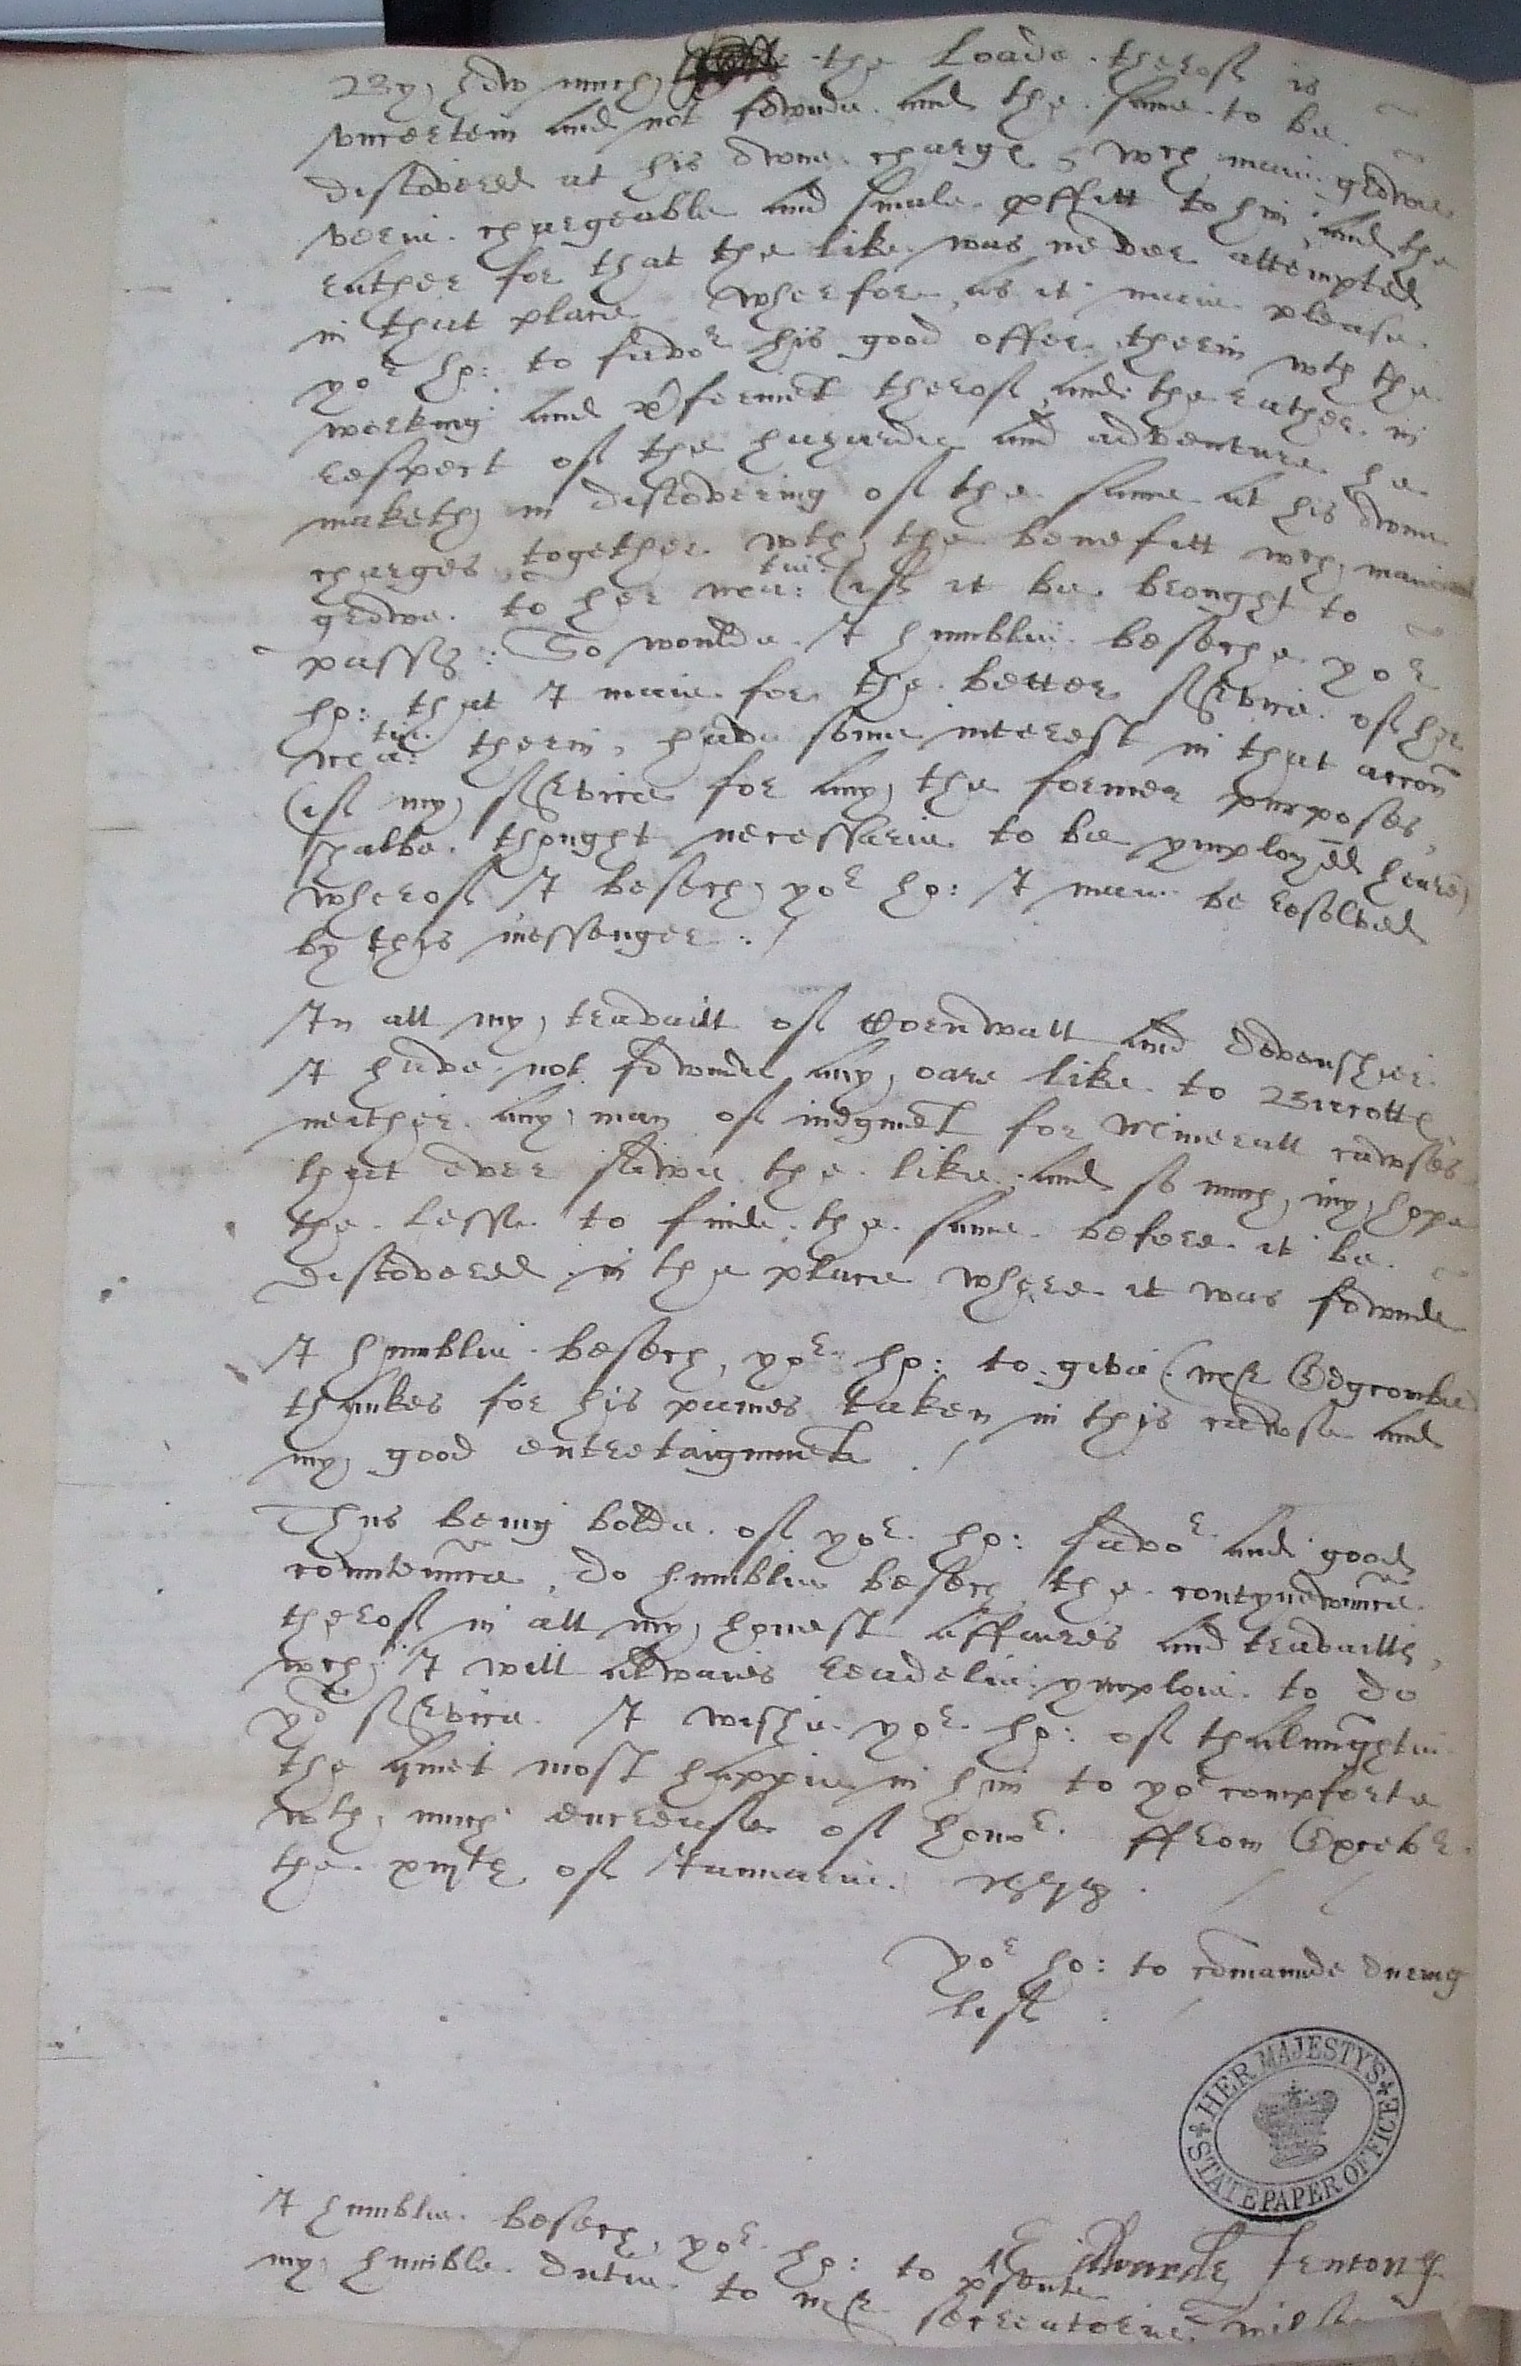 By, how much, the Loade therof is
vncertein and not fownde and the same to be
discovered at his owne charge, wch maie growe
verie chargeable and smale pffitt to him, and the
rather for that the like was never attempted
in that place Wherfore, as it maie please
yor ho: to favor his good offer therin wth the
working and pformet therof, and the rather in
respect of the hazarde and adventure he
maketh, in discovering of the same at his owne
charges, together wth, the benefitt wch, maie
growe to her matie: (if it be brought to
passe: So woulde I humblie beseche yor
ho: that I maie for the better service of her
matie: therin, have some interest in that accon
(if my, service for any, the former purposes,
shalbe thought necessarie to be ymployed heare)
wherof I besech, yor ho: I maie be resolved
by this messenger ./
In all my, travaill of Cornwall and Devonshier
I have not fownde any, oare like to
neither any, man of iudgmet for Minerall cawses
that ever sawe the like, and so much, my, hope
the lesse to finde the same before it be
discovered in the place where it was fownde
I humblie besech, yor ho: to geve (mr Edgcombe)
thankes for his paines taken in this cawse and
my, good entretaignmete ./
Thus being bolde of yor ho: favor and good
countennce, do humblie besech the contynewnce
therof in all my, honest affaires and travaills,
wch, I will alwaies readelie ymploie to do
yor service. I wishe yor ho: of thalmyghtie
the quiet most happie in him to yor comforte
wth, much encrease of honor. ffrom
the of Januarie. 1578 . //
Yor ho: to comaunde during
lif ./
HER MAJESTY'S STATE PAPER OFFICE
Edwarde Fenton
I humblie besech, yor ho: to psente
my, humble dutie to mr secreatorie